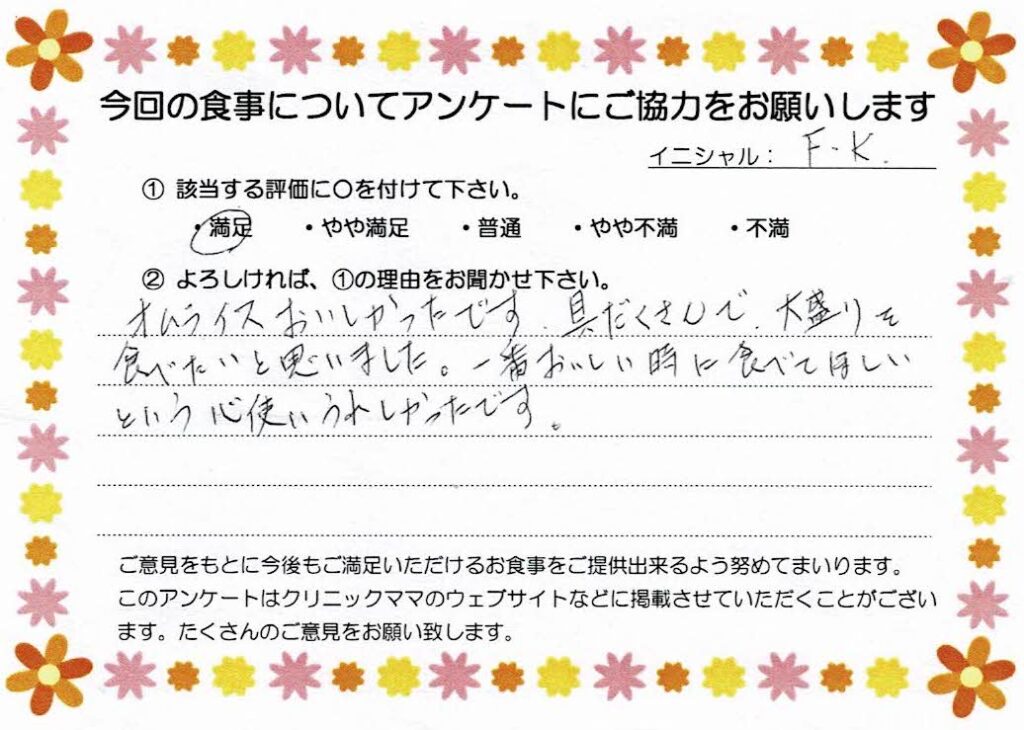 今回の食事についてアンケートにご協力をお願いします
イニシャル： F・K.
① 該当する評価に〇を付けて下さい。
・満足 ・やや満足 ・普通 ・やや不満 ・不満
② よろしければ、①の理由をお聞かせ下さい。
オムライスおいしかったです。具だくさんで、大盛りを
食べたいと思いました。一番おいしい時に食べてほしい
という心使いうれしかったです。
ご意見をもとに今後もご満足いただけるお食事をご提供出来るよう努めてまいります。
このアンケートはクリニックママのウェブサイトなどに掲載させていただくことがござい
ます。たくさんのご意見をお願い致します。